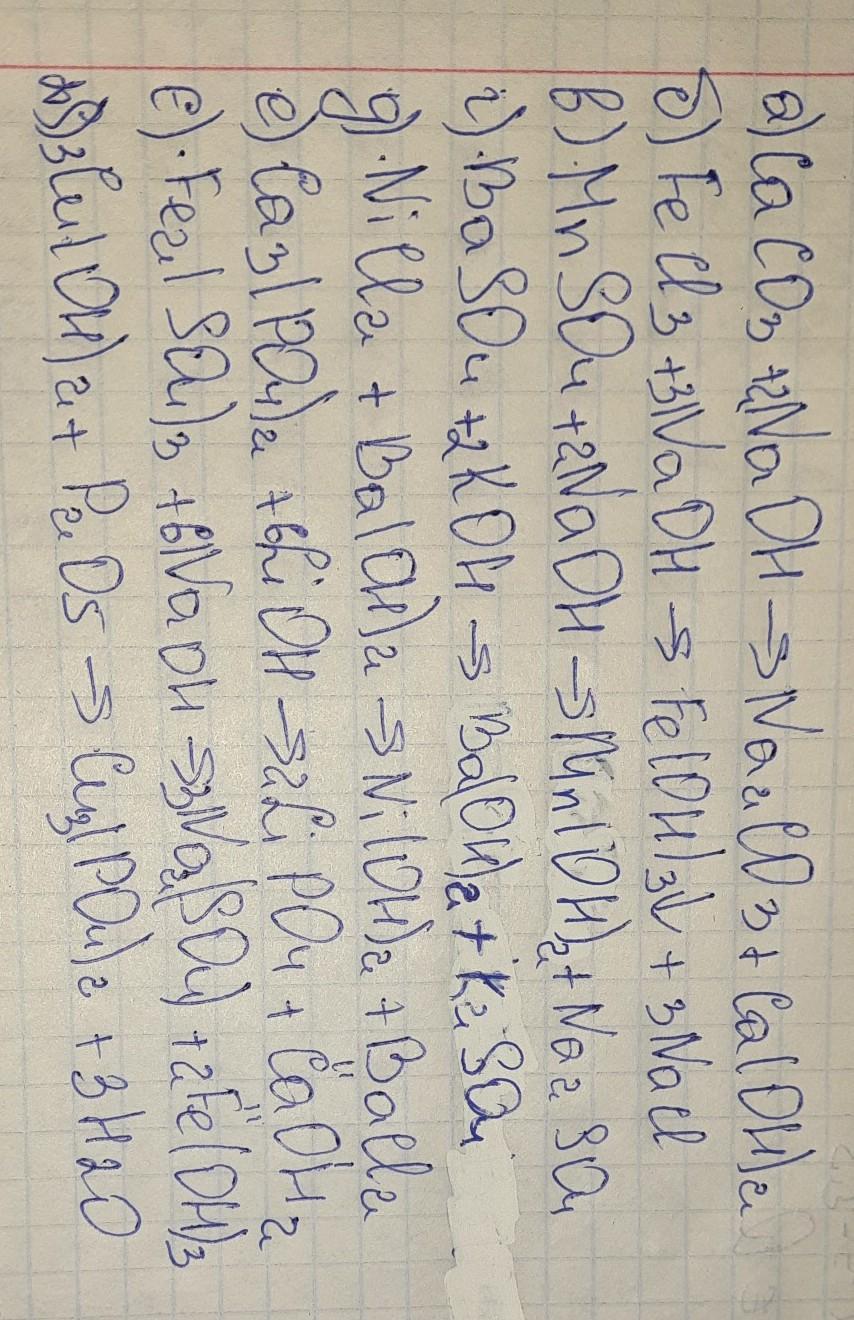 а) CaCO3 + 2NaOH → Na2CO3 + Ca(OH)2
б) FeCl3 + 3NaOH → Fe(OH)3↓ + 3NaCl
в) MnSO4 + 2NaOH → Mn(OH)2 + Na2SO4
г) BaSO4 + 2KOH → Ba(OH)2 + K2SO4
д) NiCl2 + Ba(OH)2 → Ni(OH)2 + BaCl2
е) Ca3(PO4)2 + 6LiOH → 2Li PO4 + CaOH2
є) Fe2(SO4)3 + 6NaOH → 3Na2(SO4) + 2Fe(OH)3
ж) 3Cu(OH)2 + P2O5 → Cu3(PO4)2 + 3H2O